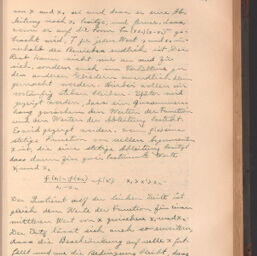 von x und x₀ sei und dass er eine Ab-
leitung nach x₀ besitze, und ferner, dass
wenn er auf die Form
bracht wird, T für jeden Wert x und x₀ inner-
halb des Bereiches endlich ist. Der
Rest kann nicht nur an und für
sich, sondern auch im Verhältnis zu
den anderen Gliedern unendlich klein
gemacht werden. Hierbei sollen wir
vorläufig stehen bleiben. Später wird
gezeigt werden, dass ein Zusammen-
hang zwischen den Werten der Function
und den Werten der Ableitung besteht.
Es wird gezeigt werden, wenn f(x) eine
stetige Function von reellem Argumenten
x ist, die eine stetige Ableitung besitzt
dass dann für zwei bestimmte Werte
x₁ und x₂
f(x₁) - f(x₂) / x₁ - x₂ = f'(x') x₁ > x' > x₂
Der Quotient auf der linken Seite ist
gleich dem Werte der Function für einen
mittleren Wert von x zwischen x₁ und x₂.
Der Satz lässt sich auch so erweitern,
dass die Beschränkung auf reelle x fort-
fällt und wie die Bedingung bleibt, dass